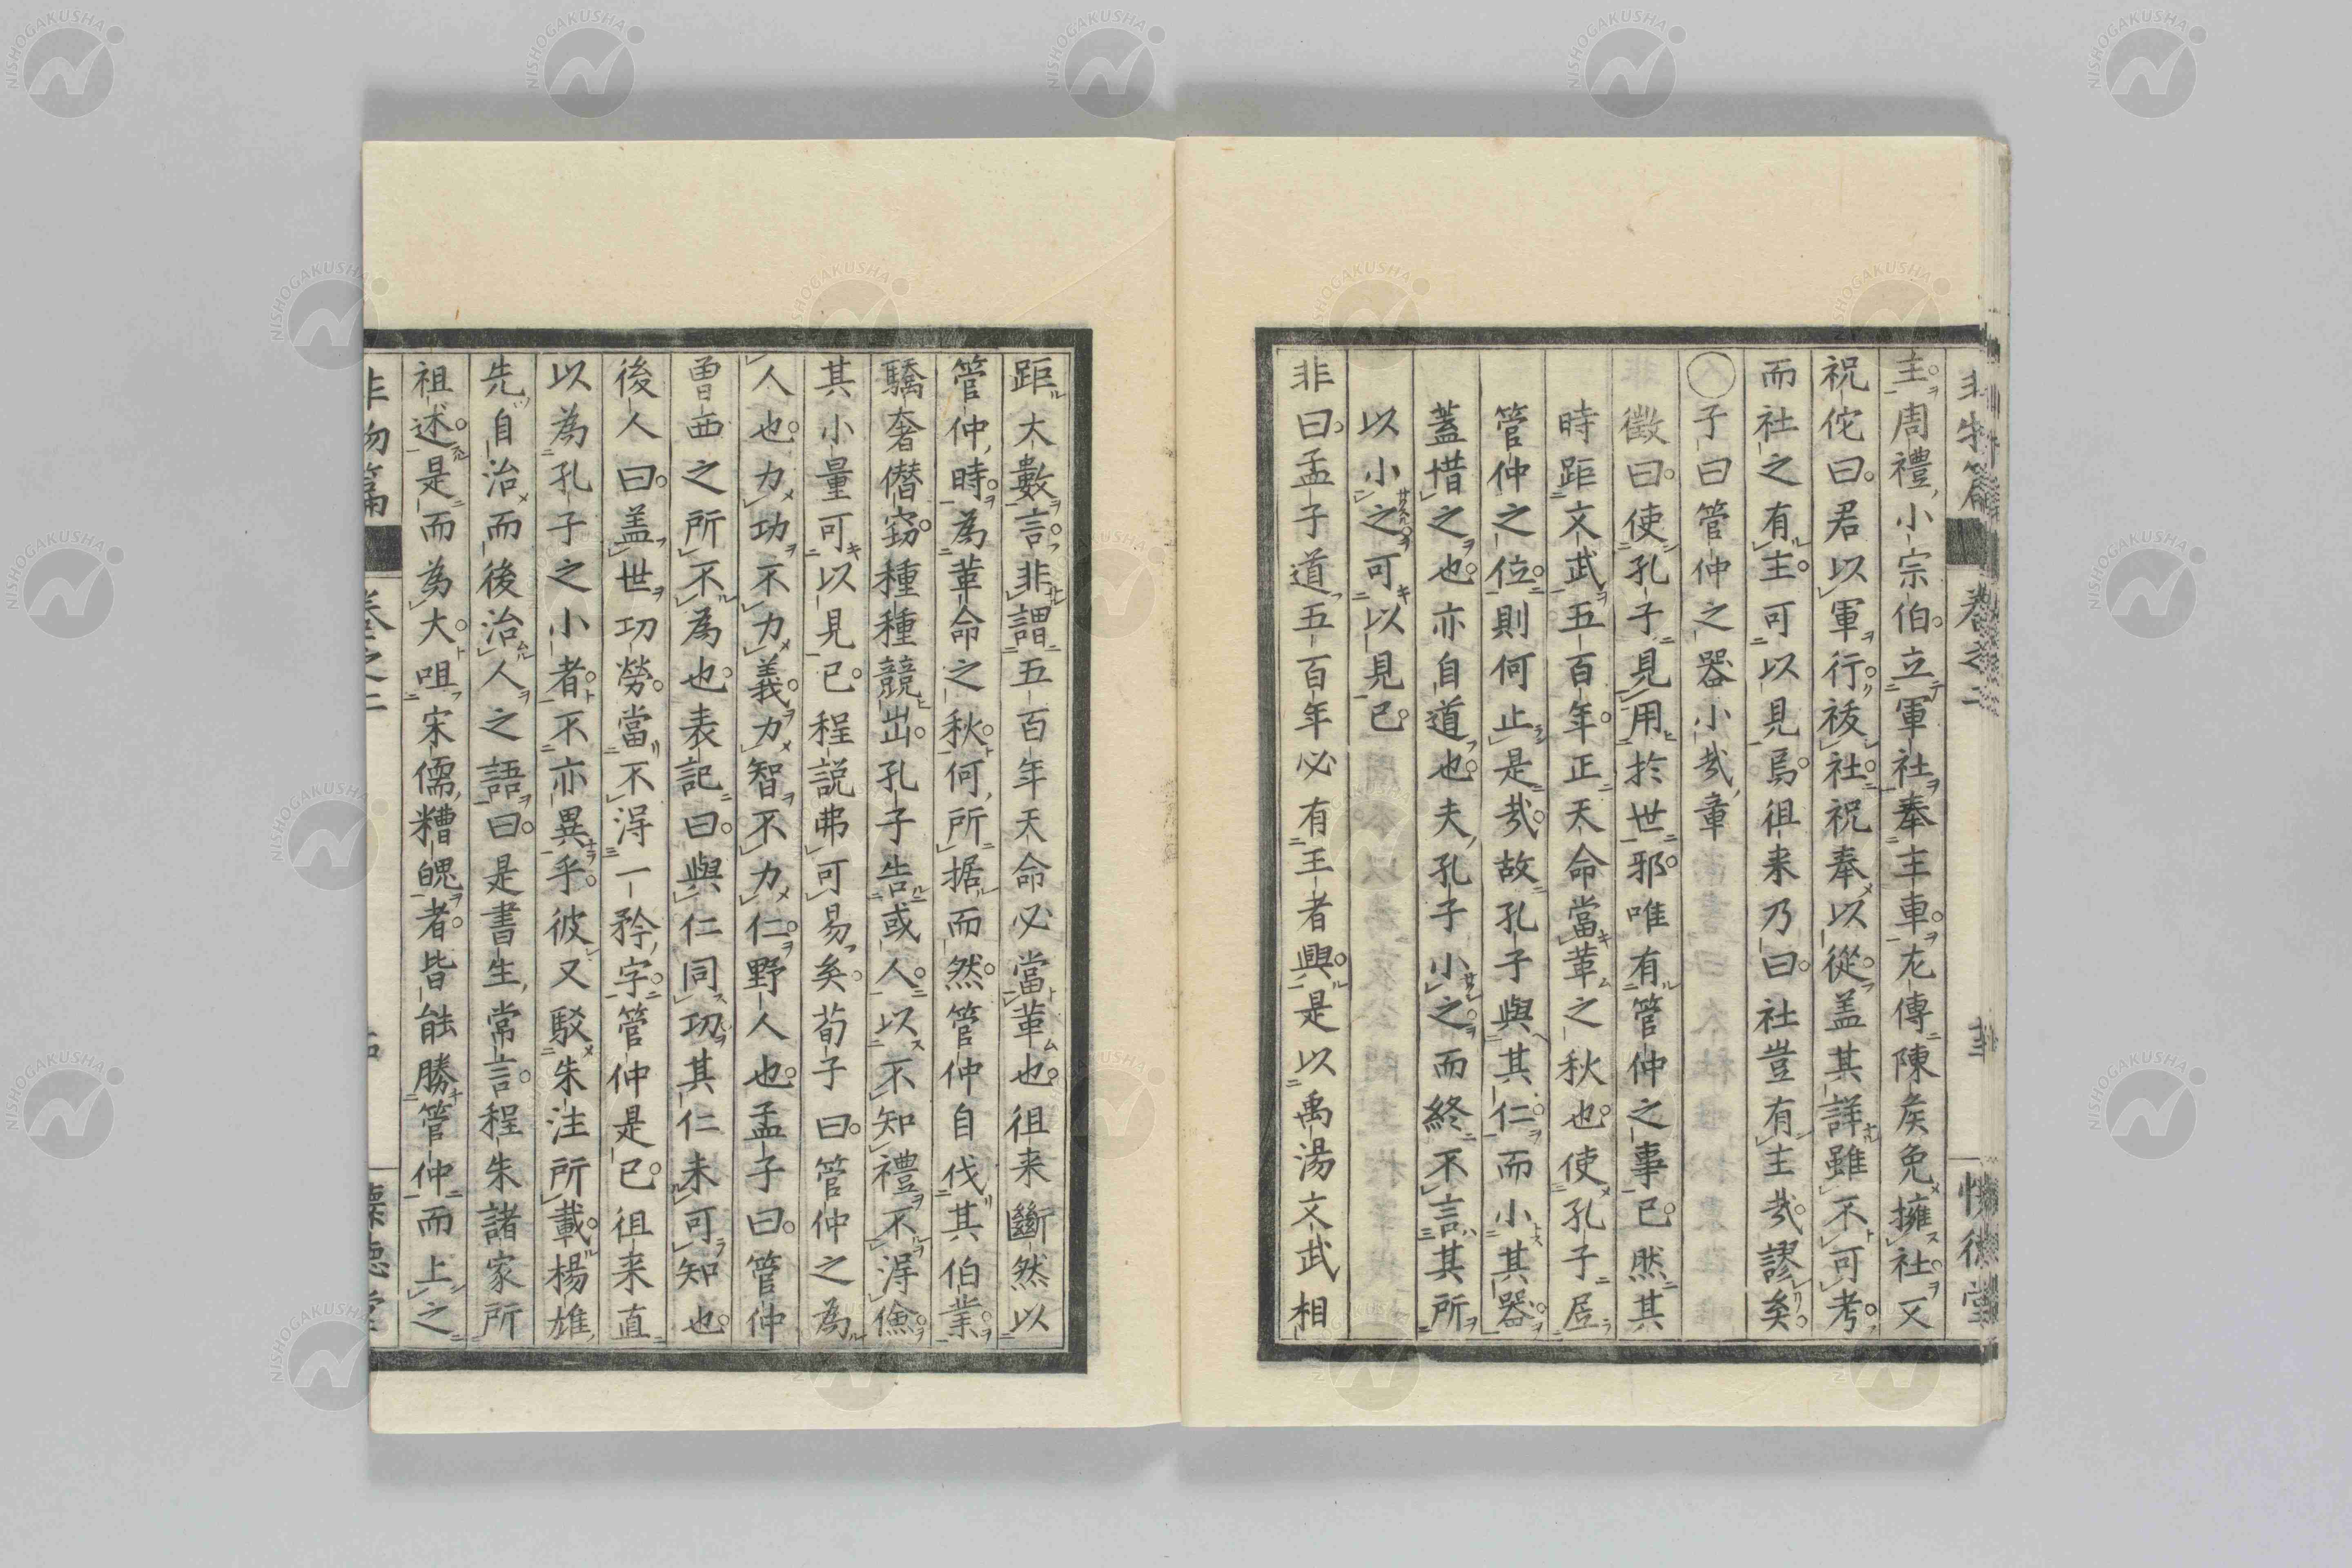 主周禮小宗伯立軍社奉主車左傳陳矦免擁社又
祝佗曰君以軍行祓社祝奉以從盖其詳雖不可考
而社之有主可以見焉徂来乃曰社豈有主哉謬矣
○子曰管仲之器小哉章
徵曰使孔子見用於世邪唯有管仲之事已然其
時距文武五百年正天命當革之秋也使孔子居
管仲之位則何止是哉故孔子與其仁而小其器
蓋惜之也亦自道也夫孔子小之而終不言其所
以小之可以見已
非曰孟子道五百年必有王者興是以禹湯文武相
距大數言非謂五百年天命必當革也徂来斷然以
管仲時為革命之秋何所据而然管仲自伐其伯業
驕奢僭竊種種競出孔子告或人以不知禮不淂儉
其小量可以見已程説弗可易矣荀子曰管仲之為
人也力功不力義力智不力仁野人也孟子曰管仲
曽西之所不為也表記曰與仁同功其仁未可知也
後人曰盖世功勞當不淂一矜字管仲是已徂来直
以為孔子之小者不亦異乎彼又駁朱注所載楊雄
先自治而後治人之語曰是書生常言程朱諸家所
祖述是而為大咀宋儒糟䰟者皆能勝管仲而上之
非物篇 卷之二 懐徳堂